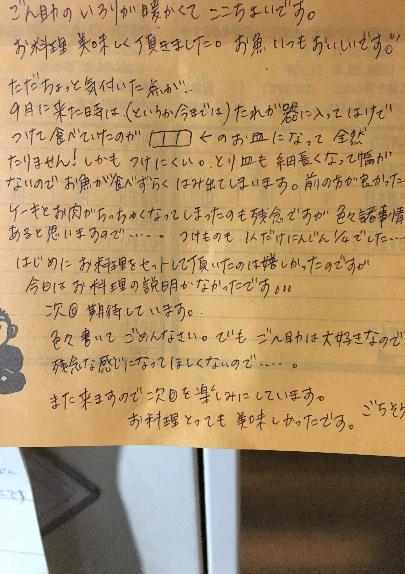 ごん助の いろりが暖かくて ここちよいです。
お料理 美味しく頂きました。お魚 いつも おいしいです。
ただちょっと気付いた点が、
9月に来た時は、(というか今までは)たれが 器に入って はけで
つけて食べていたのが ←のお皿になって 全然
たりません! しかも つけにくい。とり皿も 細長くなって幅が
ないので お魚が食べずらく はみ出てしまいます。前の方が良かった
ケーキとお肉がちっちゃくなってしまったのも残念ですが 色々諸事情
あると思いますので・・・・・。つけものも 1人だけにんじん1/4でした・・・
はじめに お料理をセットして頂いたのは嬉しかったのですが
今日は お料理の説明がなかったです。。。
次回 期待しています。
色々書いて ごめんなさい。でも ごん助は大好きなので
残念な感じになってほしくないので・・・・。
また来ますので 次回を楽しみにしています。
お料理とっても 美味しかったです。ごちそう